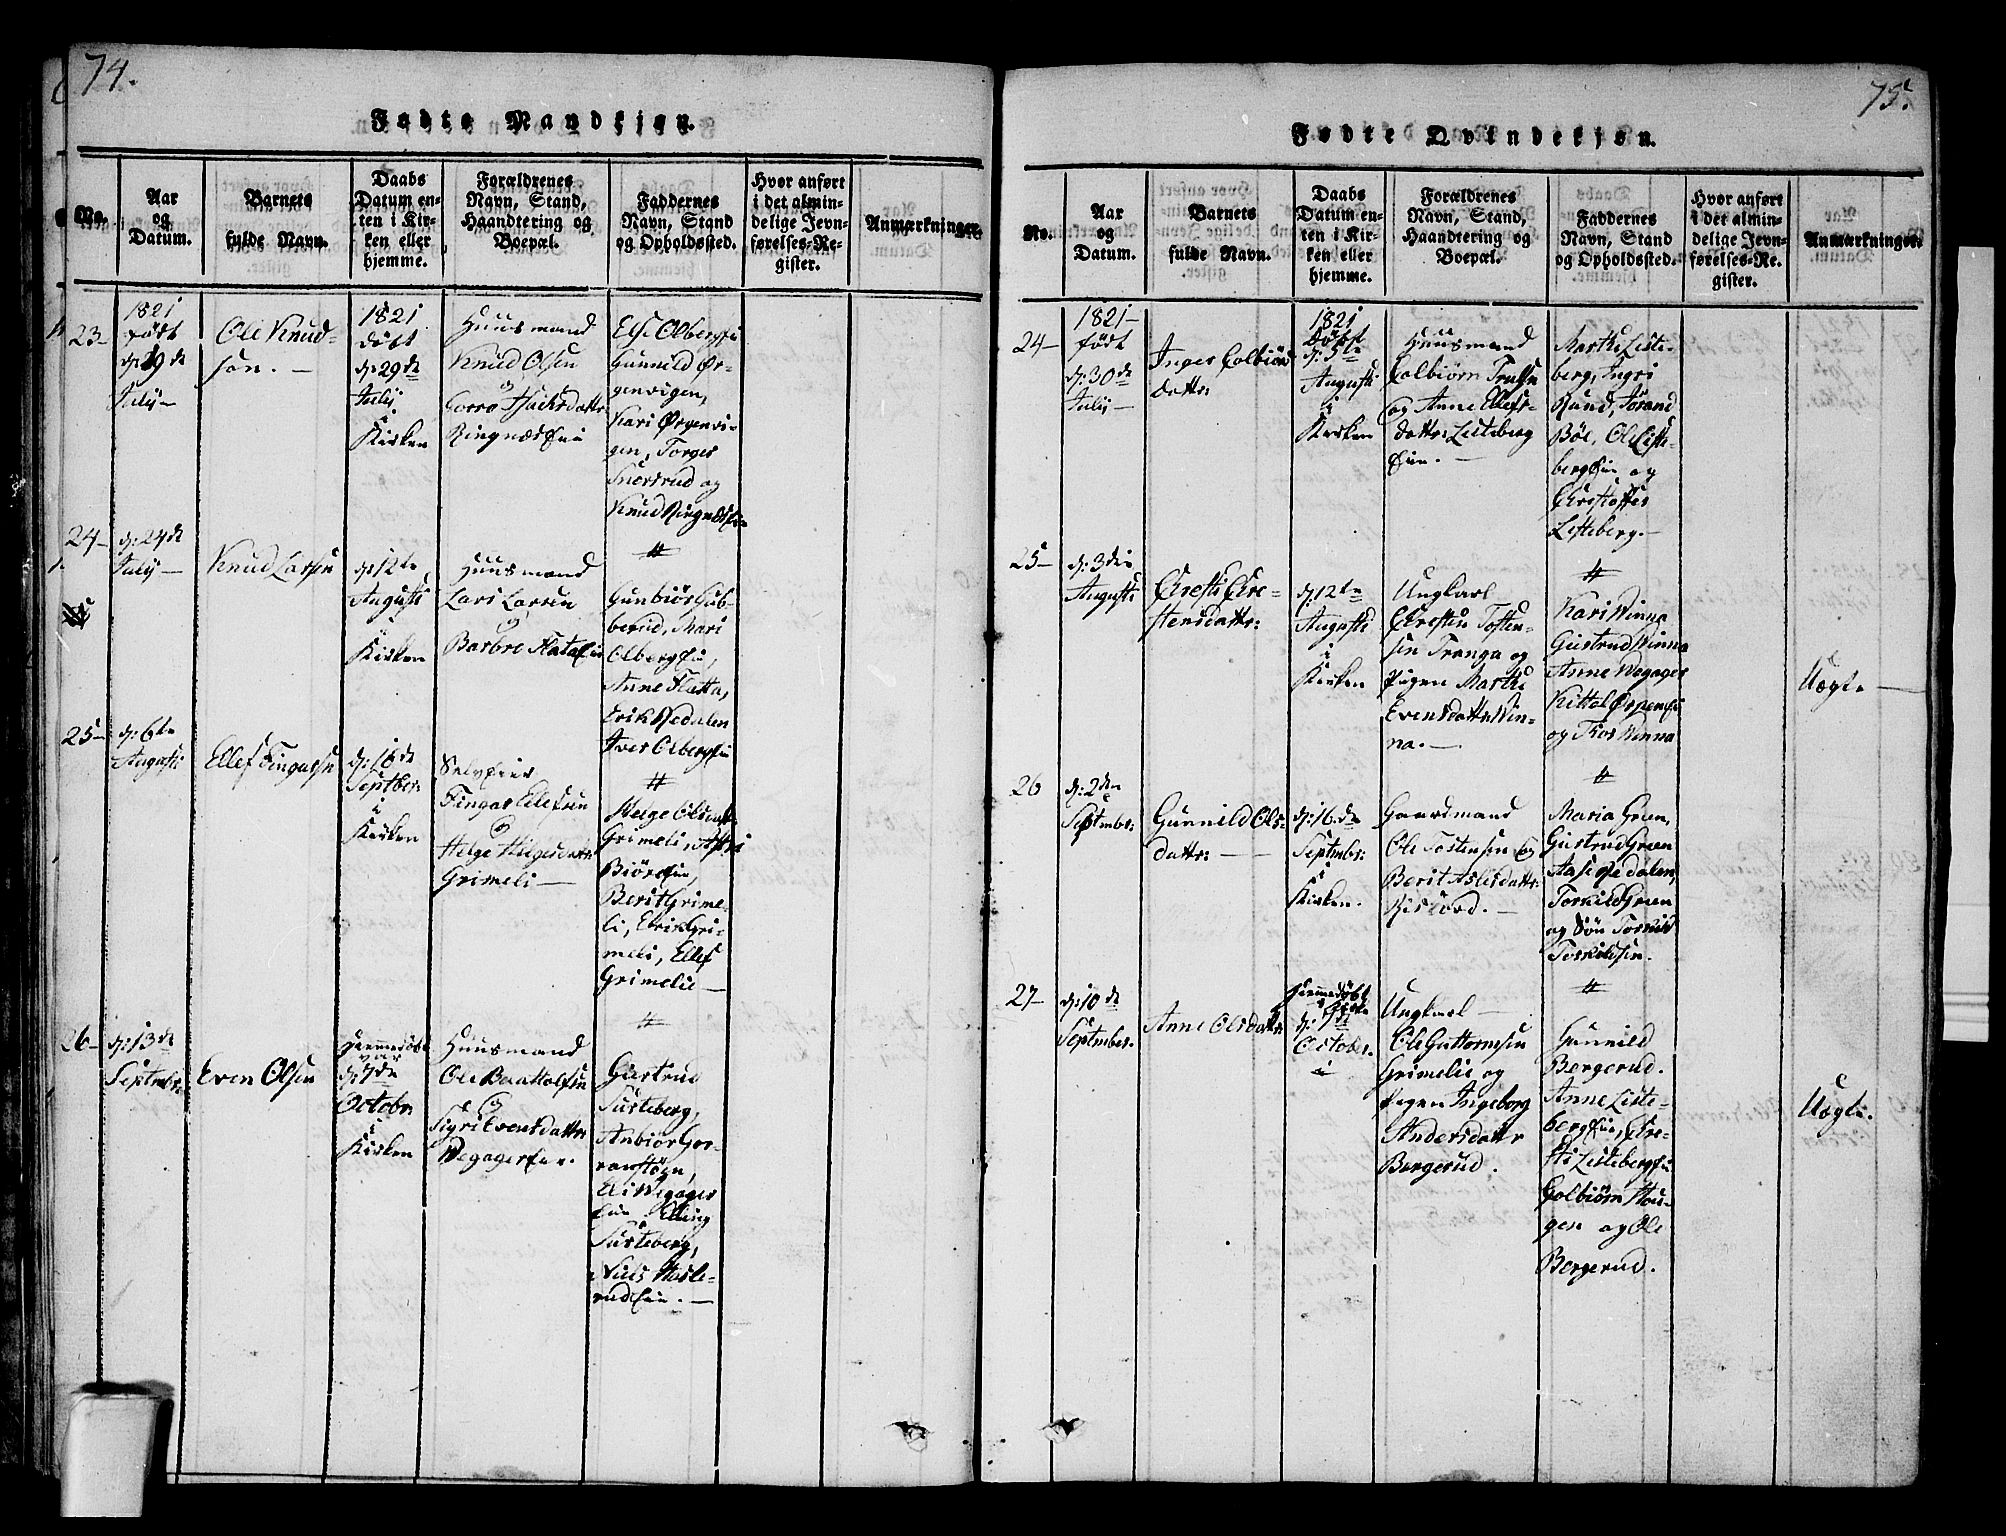 74.
Fødte Mandkjøn.
No.
Aar
og
Datum.
Barnets
fulde Navn.
Daabs
Datum en-
ten i Kir-
ken eller
hjemme.
Forældrenes
Navn, Stand,
Haandtering og
Boepæl.
Faddernes
Navn, Stand
og Opholdssted.
Hvor anført
i det almin-
delige Jevn-
førelses-Re-
gister.
Anmærkninger.
23-
1821
født
d: 19de
July-
Ole Knud-
søn.-
1821
døbt
d: 29de
July.
Kirken
Huusmand
Knud Olsen
og
Isachsdattr:
Ringnæs
Else Olberg
Gunnild Ør-
genvigen,
Kari Ørgenvi-
gen, Torger
og
Knud
24-
d: 24de
July-
Knud Larsen
d: 12te
Augusti
i
Kirken
Huusmand
Lars Larsen
og
Barbro
Gunbiør Gub-
berud, Mari
Olberg
Anne Flatta,
Erik Nedalen
Iver Olberg
25-
d: 6te
Augusti
Ellef Fingarsen
d: 16de
Septber:
i
Kirken
Fingar Ellefsen
og
Helge
Grimeli-
Helge
Grimeli,
Berit Grime-
li, Erik Gri-
meli, Ellef
Grimelie-
26-
d: 13de
Septmbr:
Even Olsen
var
d: 7de
Octobr:
i
Kirken
Huusmand
Ole
og
Sigri Evensdattr:
Gustrud
Susteberg,
Anbiør Gor-
Eli Wegager
Elling
Susteberg,
Niels Hasle-
rud
75.
Fødte Qvindekjøn.
No.
Aar
og
Datum.
Barnets
fulde Navn.
Daabs
Datum en-
ten i Kir-
ken eller
hjemme.
Forældrenes
Navn, Stand,
Haandtering og
Boepæl.
Faddernes
Navn, Stand
og Opholdssted.
Hvor anført
i det almin-
delige Jevn-
førelses-Re-
gister.
Anmærkninger.
24-
1821-
født
d: 30de
July-
Inger Colbiørns
dattr:
1821
døbt
d: 5te
Augusti
i
Kirken
Huusmand
Colbiørn
og Anne Ellefs-
dattr: Listeberg
Marthe Liste-
berg, Ingri
Rund, Torand
Böe, Ole Liste-
berg og
Christoffer
Listeberg.-
25-
d: 3die
Augusti
Christi Chri-
stensdattr:
d: 12te
Augusti
i
Kirken
Ungkarl
Christen Tosten-
sen Tranga og
Pigen Marthe
Evensdattr Win-
na.-
Kari Winna
Gustrud Winna
Anne Wegager
Kittol
og Winna
Uægte-
26
d: 2den
Septmber:
Gunnild Ols-
dattr:
d: 16de
Septmbr:
i
Kirken.
Gaardmand
Ole Tostensen og
Berit Aslesdattr:
Maria Green,
Gustrud Green
Aase
Torkild Green
og Søn
Torkildsen.
27-
d: 10de
Septmber:
Anne Olsdattr:
d: 7de
October.
Ungkarl-
Ole Guttormsen
Grimelie og
Pigen Ingeborg
Andersdattr
Bergerud.
Gunnild
Bergerud.
Anne Liste-
berg
Listeberg
Colbiørn Hou-
gen og Ole
Bergerud.
Uægte.